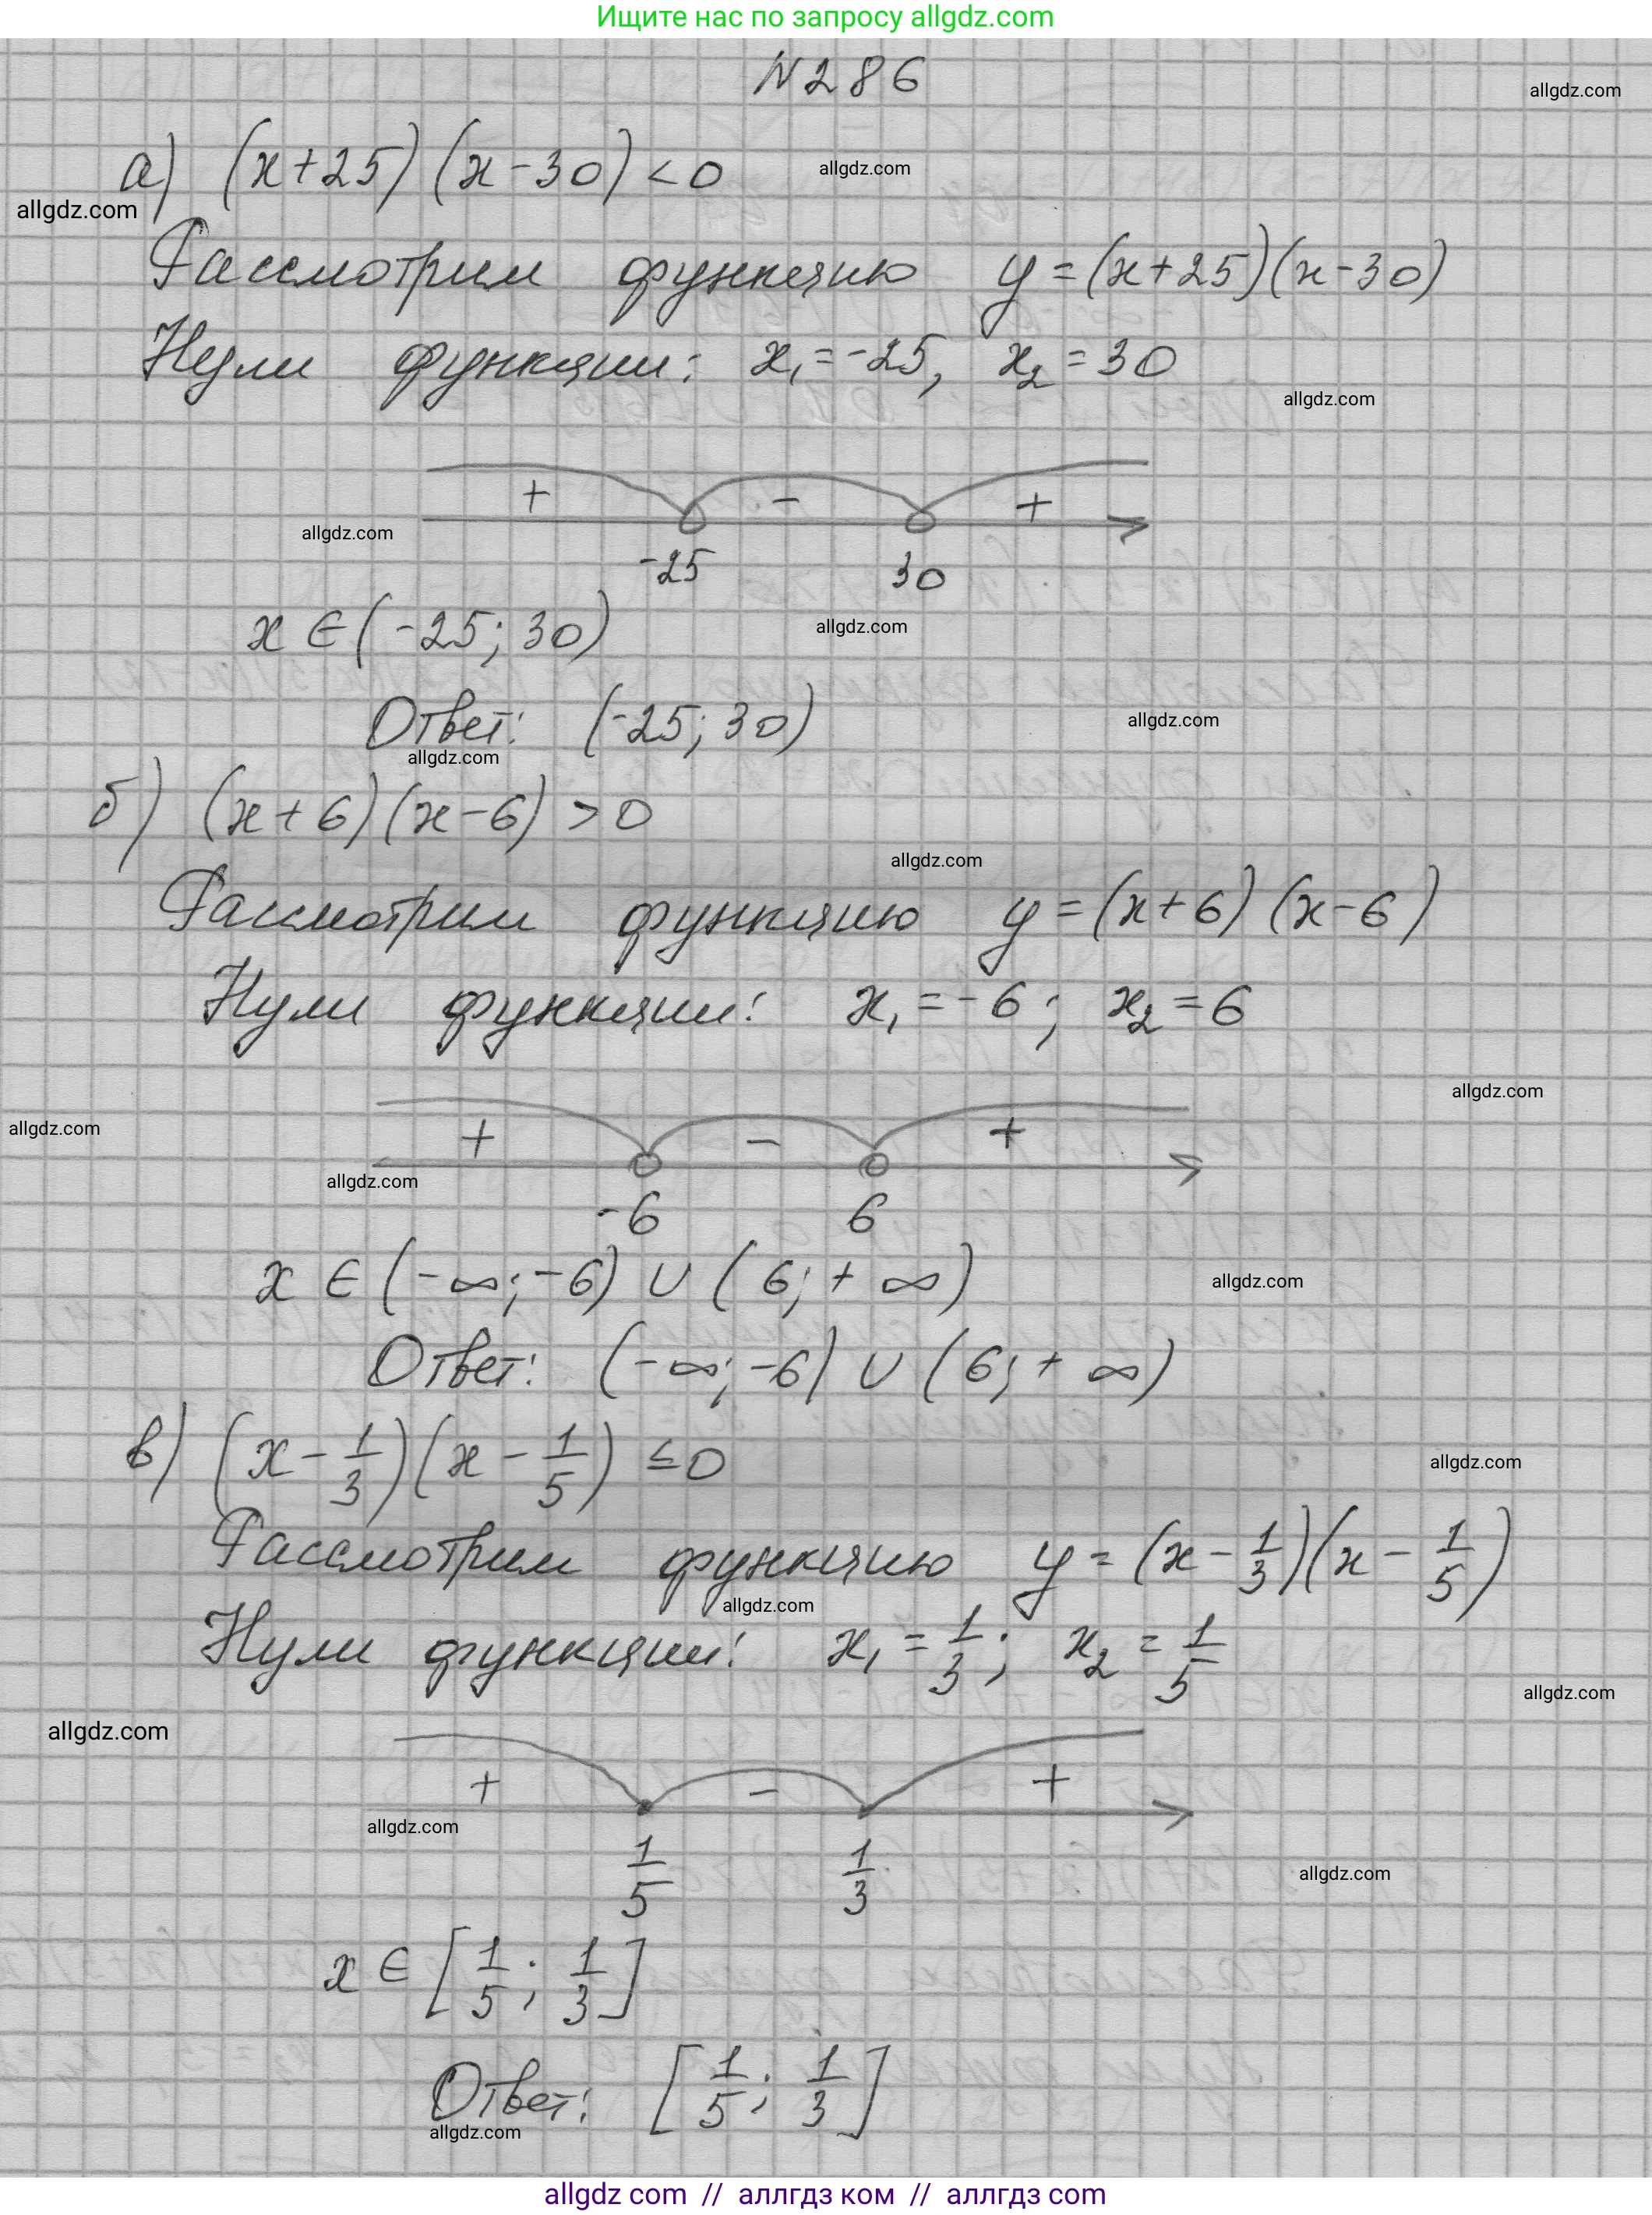 Ищите нас по запросу allgdz.com
N286
allgdz.com
а) (x+25)(x-30)<0
allgdz.com
allgdz.com
Рассмотрим функцию y=(x+25)(x-30)
Нули функции: x₁=-25, x₂=30
allgdz.com
+ - +
allgdz.com
-25 30
x∈(-25;30)
allgdz.com
Ответ: (-25;30)
allgdz.com
allgdz.com
б) (x+6)(x-6)>0
allgdz.com
Рассмотрим функцию y=(x+6)(x-6)
Нули функции: x₁=-6; x₂=6
allgdz.com
allgdz.com
+ - +
allgdz.com
-6 6
x∈(-∞;-6)∪(6;+∞)
allgdz.com
Ответ: (-∞;-6)∪(6;+∞)
в) (x-1/3)(x-1/5)≤0
allgdz.com
Рассмотрим функцию y=(x-1/3)(x-1/5)
allgdz.com
Нули функции: x₁=1/3; x₂=1/5
allgdz.com
allgdz.com
+ - +
allgdz.com
1/5 1/3
allgdz.com
x∈[1/5;1/3]
Ответ: [1/5;1/3]
allgdz.com
allgdz com // аллгдз ком // аллгдз com